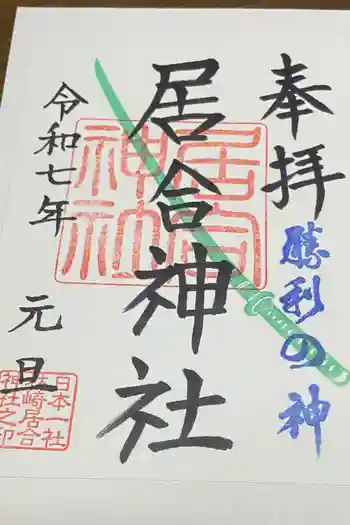 奉拝
勝利の神
居合神社
居合神社
令和七年
元旦
日本一社
林崎居合
神社之印